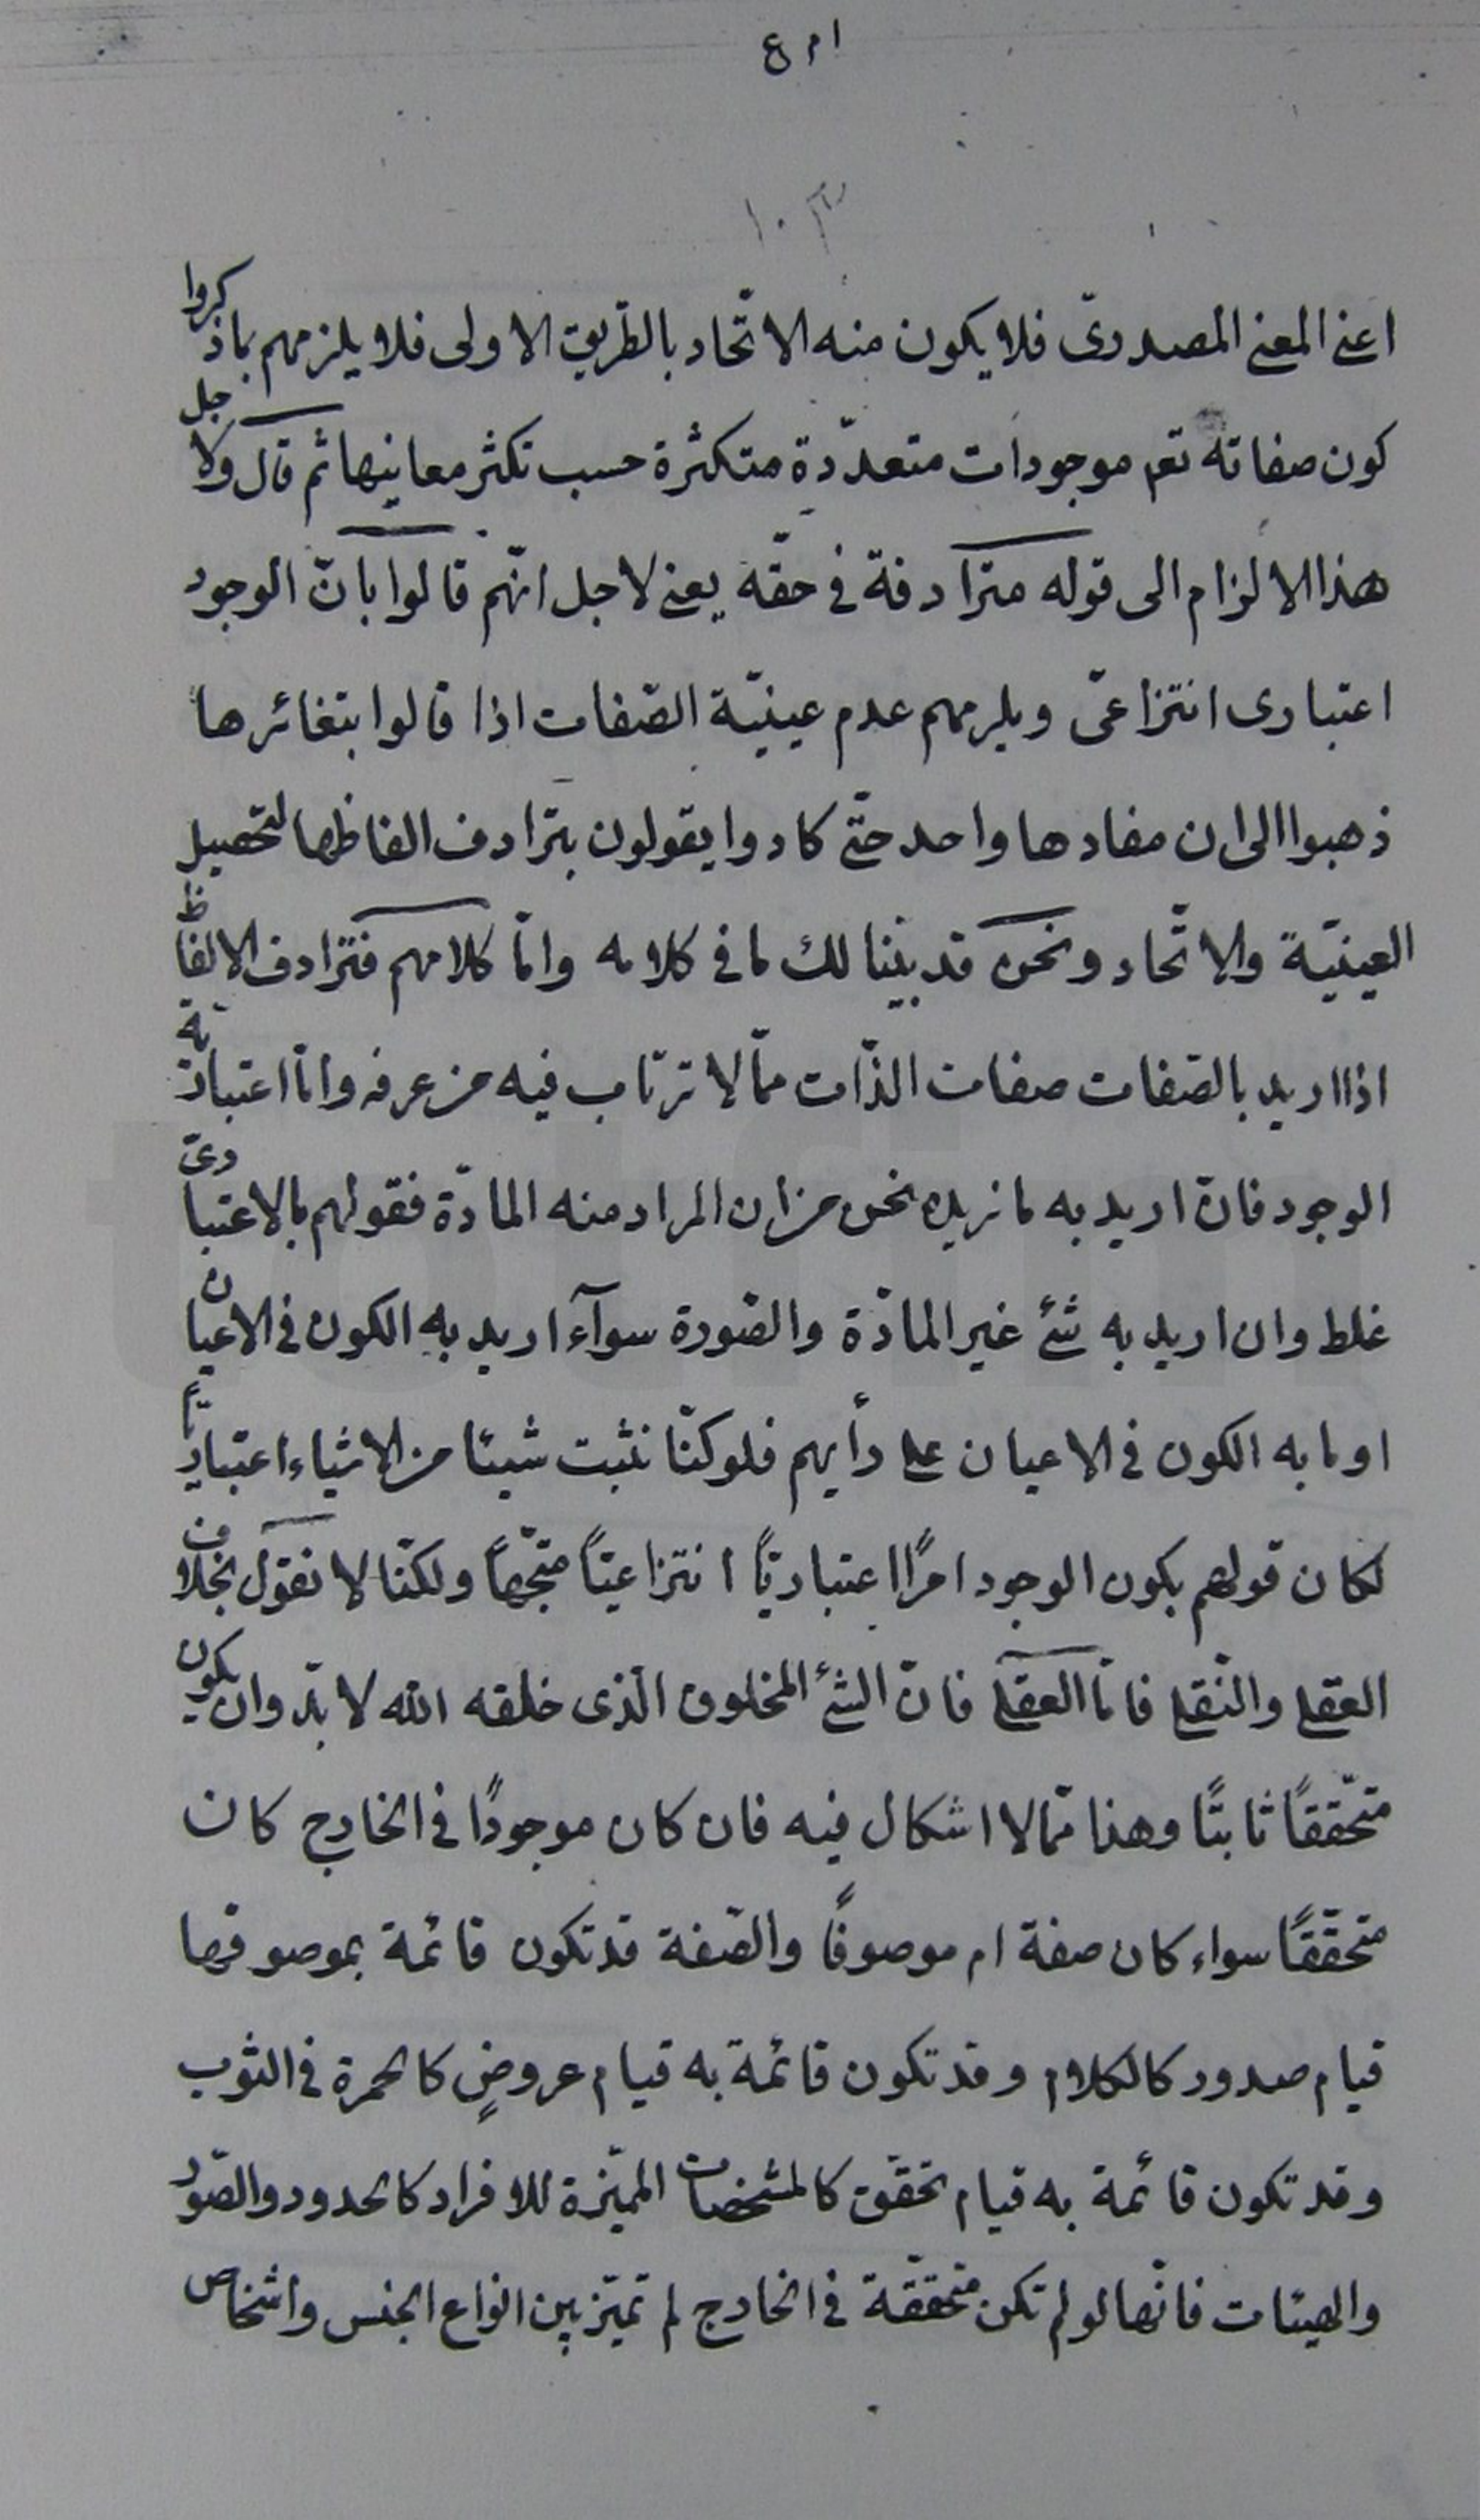 ١٠٣
اعنى المعنى المصدرىّ فلا يكون منه الاتّحاد بالطّريق الاولى فلا يلزمهم بما ذكروا
كون صفاته تعم موجودات متعدّدة متكثرة حسب تكثر معانيها ثم قال ولاجل
هذا الالزام الى قوله مترادفة فى حقّه يعنى لاجل انّهم قالوا بانّ الوجود
اعتبارى انتزاعىّ ويلزمهم عدم عينيّة الصّفات اذا قالوا بتغائرها
ذهبوا الى ان مفادها واحد حتّى كادوا يقولون بترادف الفاظها لتحصيل
العينيّة والاتّحاد ونحن قد بيّنا لك ما فى كلامه وامّا كلامهم فترادف الالفاظ
اذا اريد بالصّفات صفات الذّات ممّا لا ترتاب فيه من عرفه وامّا اعتباريّة
الوجود فانّ اريد به ما نريده نحن من ان المراد منه المادّة فقولهم بالاعتبارىّ
غلط وان اريد به شئ غير المادّة والصّورة سوآء اريد به الكون فى الاعيان
او ما به الكون فى الاعيان على رأيهم فلو كنّا نثبت شيئا من الاشياء اعتباريّاً
لكان قولهم بكون الوجود امرًا اعتباريّاً انتزاعيّاً متّجهاً ولكنّا لا نقول بخلاف
العقل والنّقل فامّا العقل فانّ الشئ المخلوق الّذى خلقه الله لا بدّ وان يكون
متحّققًا ثابتًا وهذا ممّا لا اشكال فيه فان كان موجودًا فى الخارج كان
متحقّقًا سواء كان صفة ام موصوفًا والصّفة قد تكون قائمة بموصوفها
قيام صدور كالكلام وقد تكون قائمة به قيام عروضٍ كالحمرة فى الثوب
وقد تكون قائمة به قيام تحقّق كالمشخصات المميّزة للافراد كالحدود والصّور
والهيئات فانّها لو لم تكن متحققّة فى الخارج لم تميّز بين انواع الجنس واشخاص